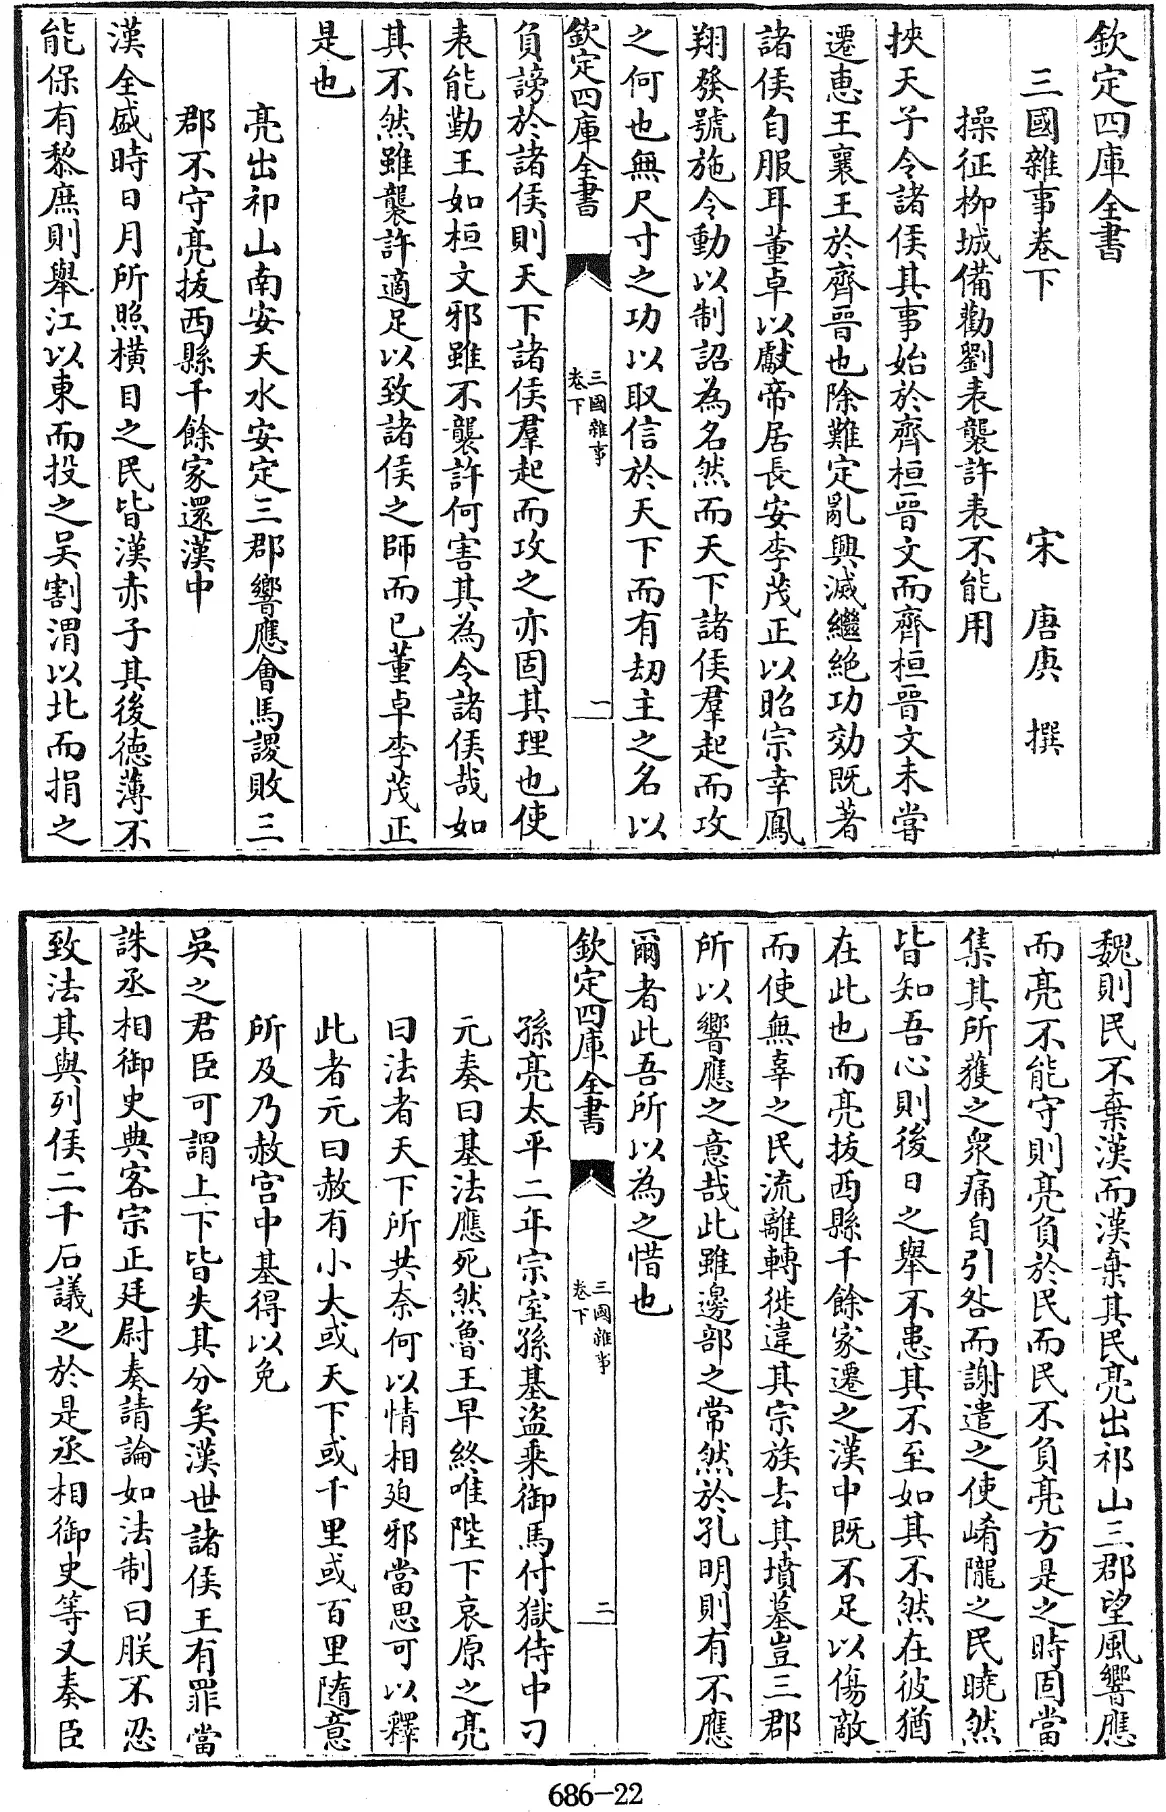 欽定四庫全書
三國雜事卷下
宋 唐庚 撰
操征柳城備勸劉表襲許表不能用
挾天子令諸侯其事始於齊桓晉文而齊桓晉文未嘗
遷惠王襄王於齊晉也除難定亂興滅繼絶功効既著
諸侯自服耳董卓以獻帝居長安李茂正以昭宗幸鳳
翔發號施令動以制詔為名然而天下諸侯羣起而攻
之何也無尺寸之功以取信於天下而有刼主之名以
欽定四庫全書
三國雜事
卷下
一
負謗於諸侯則天下諸侯羣起而攻之亦固其理也使
表能勤王如桓文邪雖不襲許何害其為令諸侯哉如
其不然雖襲許適足以致諸侯之師而已董卓李茂正
是也
亮出祁山南安天水安定三郡響應會馬謖敗三
郡不守亮拔西縣千餘家還漢中
漢全盛時日月所照橫目之民皆漢赤子其後德薄不
能保有黎庶則舉江以東而投之吴割渭以北而捐之
魏則民不棄漢而漢棄其民亮出祁山三郡望風響應
而亮不能守則亮負於民而民不負亮方是之時固當
集其所獲之衆痛自引咎而謝遣之使崤隴之民曉然
皆知吾心則後日之舉不患其不至如其不然在彼猶
在此也而亮拔西縣千餘家遷之漢中既不足以傷敵
而使無辜之民流離轉徙違其宗族去其墳墓豈三郡
所以響應之意哉此雖邊部之常然於孔明則有不應
爾者此吾所以為之惜也
欽定四庫全書
三國雜事
卷下
二
孫亮太平二年宗室孫基盜乘御馬付獄侍中刁
元奏曰基法應死然魯王早終唯陛下哀原之亮
曰法者天下所共奈何以情相廹邪當思可以釋
此者元曰赦有小大或天下或千里或百里隨意
所及乃赦宫中基得以免
吳之君臣可謂上下皆失其分矣漢世諸侯王有罪當
誅丞相御史典客宗正廷尉奏請論如法制曰朕不忍
致法其與列侯二千石議之於是丞相御史等又奏臣
686-22